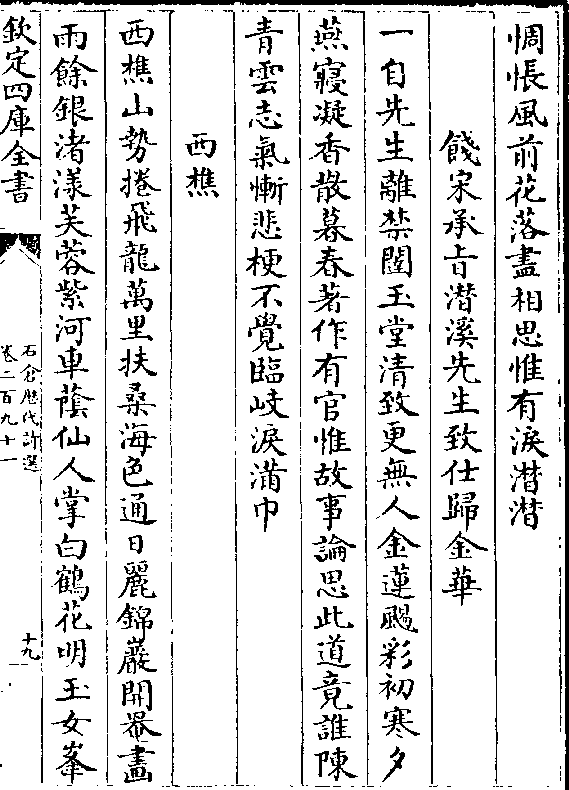 惆悵風前花落盡相思惟有淚潸潸
餞宋承㫖潜溪先生致仕歸金華
一自先生離禁闈玉堂清致更無人金蓮颺彩初寒夕
燕寢凝香散暮春著作有官惟故事論思此道竟誰陳
青雲志氣慚悲梗不覺臨岐淚滿巾
西樵
西樵山勢捲飛龍萬里扶桑海色通日麗錦巖開罨畫
雨餘銀渚漾芙蓉紫河車蔭仙人掌白鶴花明玉女峯
欽定四庫全書
石倉歴代詩選
卷二百九十一
十九